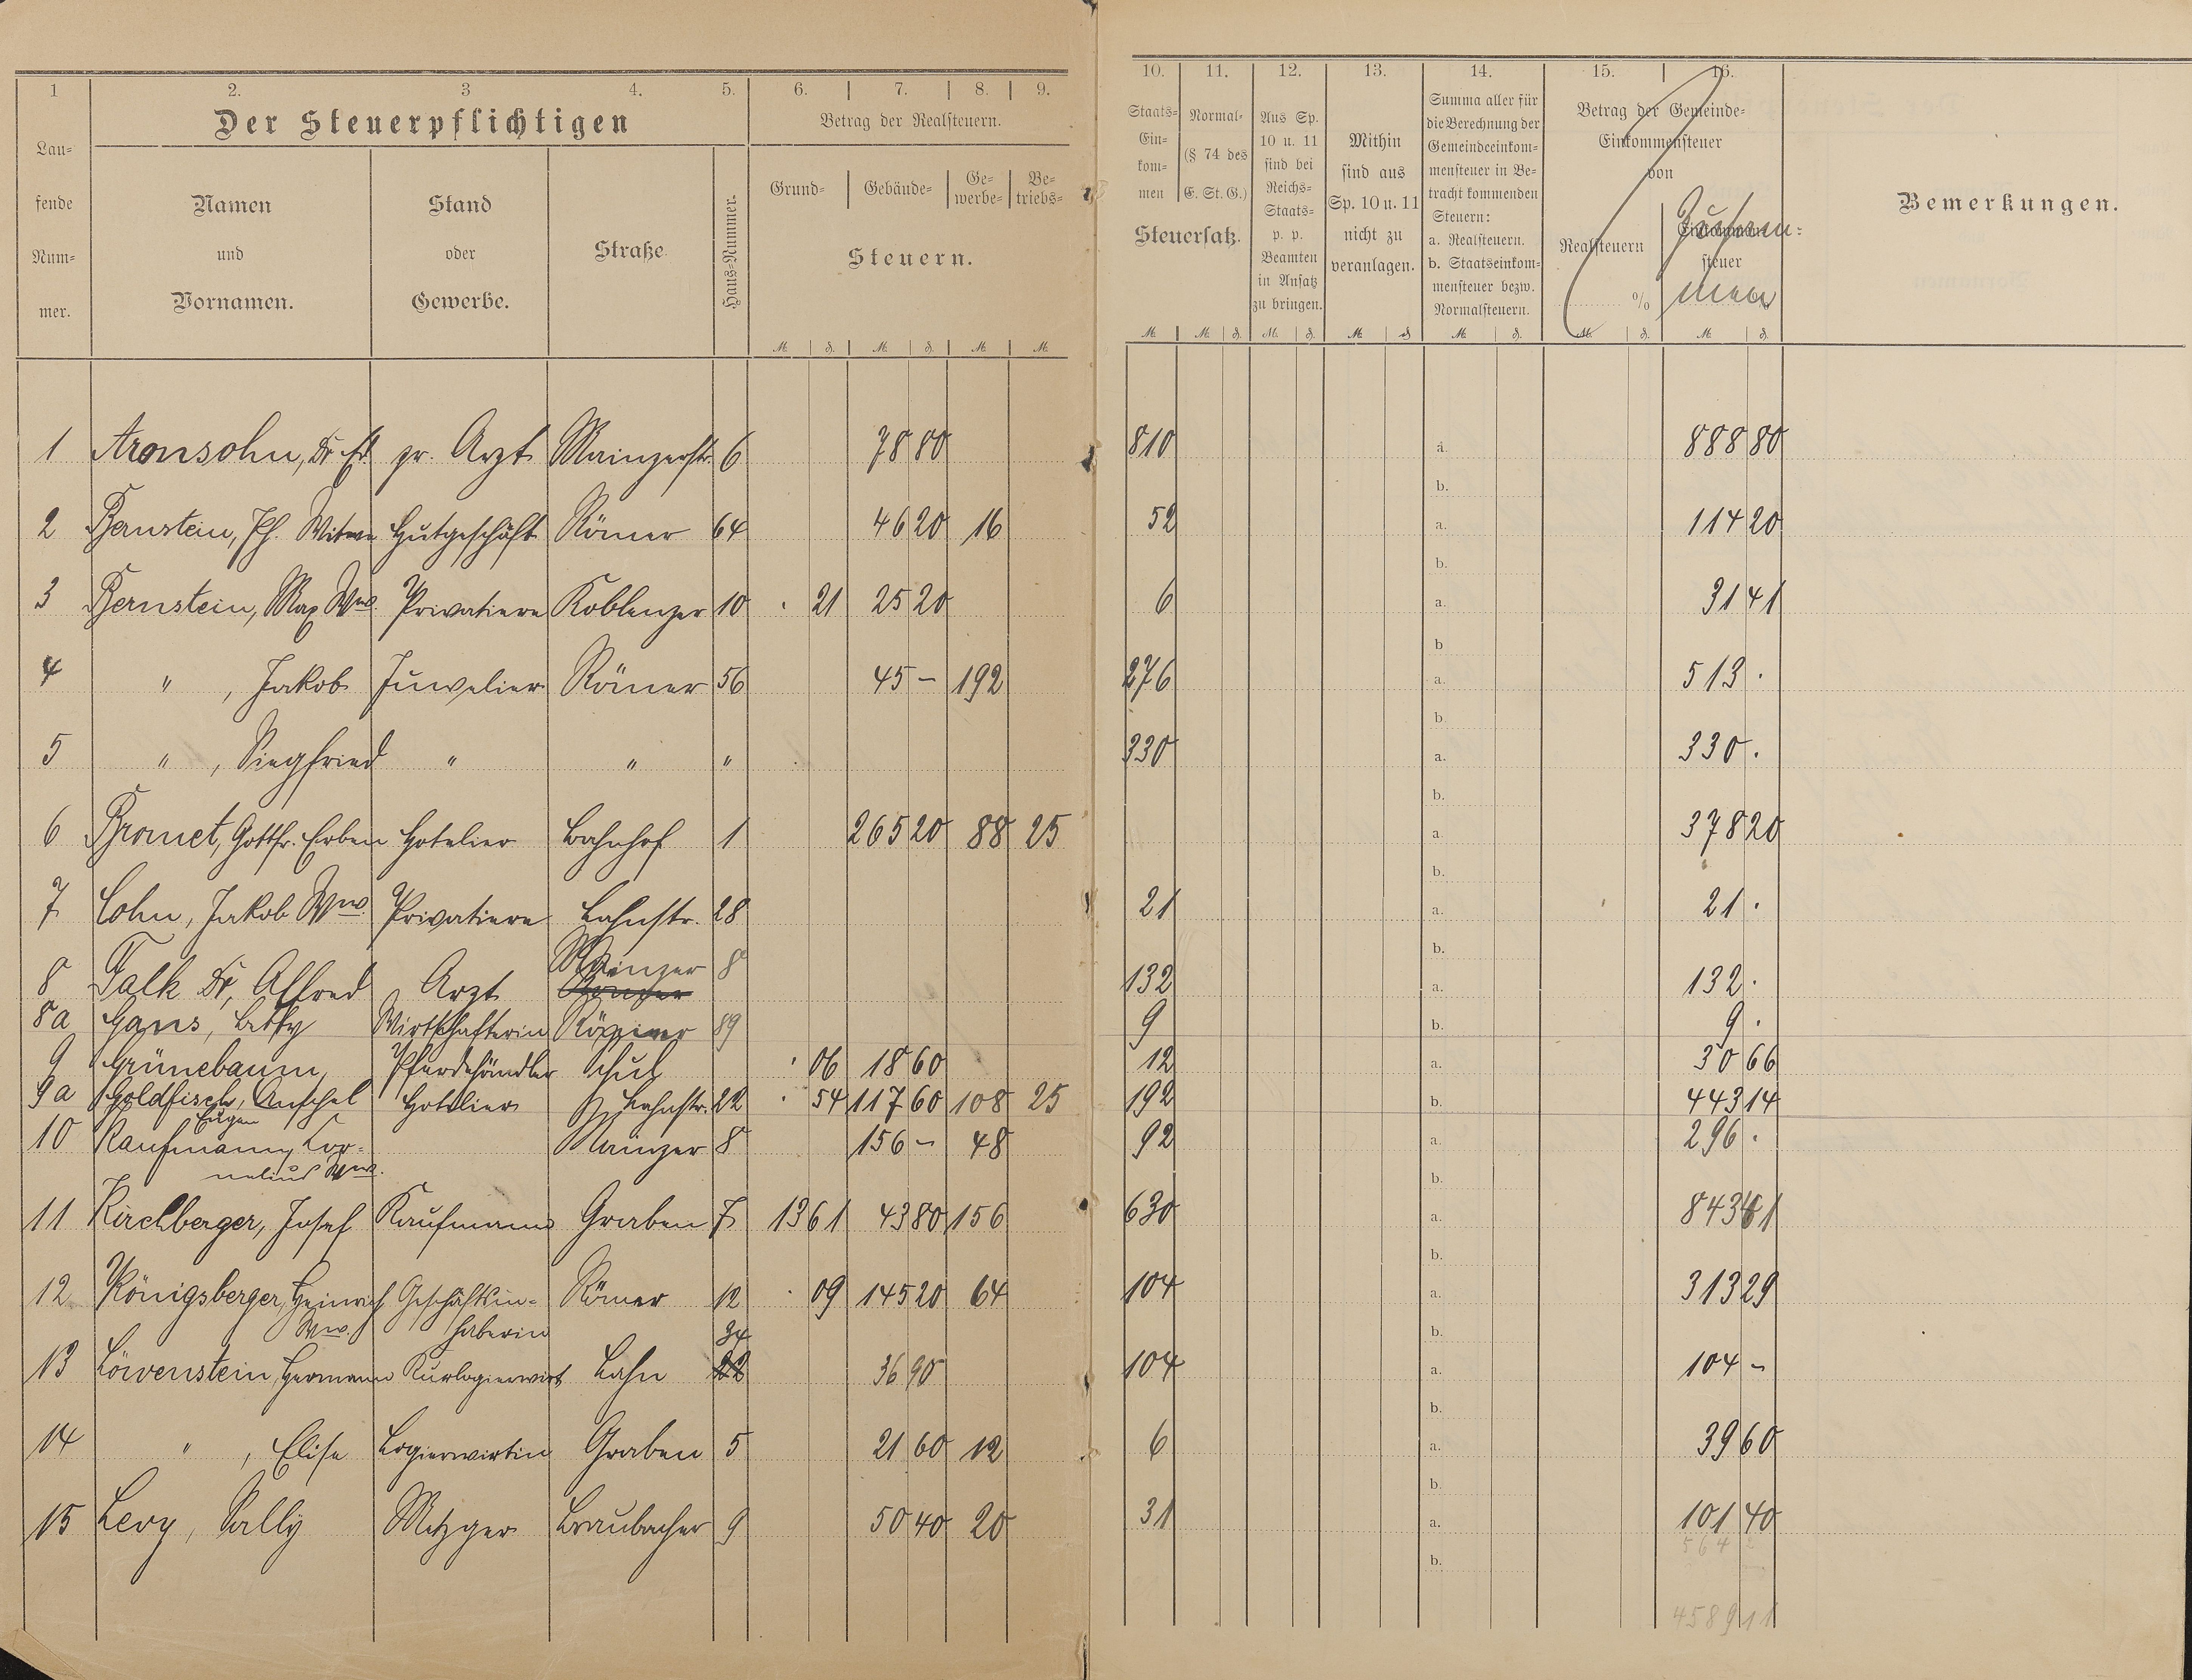 1 2. 3 4. 5. 6. 7. 8. 9. 10. 11. 12. 13. 14. 15. 16.
Lau-
fende
Num-
mer.
Der Steuerpflichtigen
Namen
und
Vornamen.
Stand
oder
Gewerbe.
Straße.
Haus-Nummer.
Betrag der Realsteuern.
Grund- Gebäude- Ge-
werbe- Be-
triebs-
Steuern.
M. d. M. d. M. M.
Staats-
Ein-
kom-
men
Normal-
(§ 74 des
E. St. G.)
Steuersatz.
Aus Sp.
10 u. 11
sind bei
Reichs-
Staats-
p. p.
Beamten
in Ansatz
zu bringen.
Mithin
sind aus
Sp. 10 u. 11
nicht zu
veranlagen.
Summa aller für
die Berechnung der
Gemeindeeinkom-
mensteuer in Be-
tracht kommenden
Steuern:
a. Realsteuern.
b. Staatseinkom-
mensteuer bezw.
Normalsteuern.
Betrag der Gemeinde-
Einkommensteuer
von
Realsteuern
%
Einkommen-
steuer
Zusam-
men
Bemerkungen.
M. M. d. M. d. M. d. M. d. M. d. M. d.
1 Aronsohn, Dr. Ed. pr. Arzt Mainzerstr. 6 78 80 810 a. 888 80
b.
2 Bernstein, Ph. Witwe Hutgeschäft Römer 64 46 20 16 52 a. 114 20
b.
3 Bernstein, Max Wwe. Privatiere Koblenzer 10 . 21 25 20 6 a. 31 41
b
4 " , Jakob Juwelier Römer 56 45 – 192 276 a. 513 .
b.
5 " , Siegfried " " " 330 a. 330 .
b.
6 Bromet, Gottfr. Erben Hotelier Bahnhof 1 265 20 88 25 a. 378 20
b.
7 Cohn, Jakob Wwe. Privatiere Lahnstr. 28 21 a. 21 .
b.
Mainzer 8
8 Falk Dr, Alfred Arzt 132 a. 132 .
8a Gans, Betty Wirtschafterin Römer 89 9 b. 9 .
9 Grünebaum, Pferdehändler Schul . 06 18 60 12 a. 30 66
9a Goldfisch, Anschel Hotelier Lahnstr. 22 . 54 117 60 108 25 192 b. 443 14
Eugen
10 Kaufmann, Cor- Mainzer 8 156 – 48 92 a. 296 .
nelius Wwe. b.
11 Kirchberger, Josef Kaufmann Graben 7 13 61 43 80 156 630 a. 843 61
b.
12 Königsberger, Heinrich Geschäftsin- Römer 12 . 09 145 20 64 104 a. 313 29
Wwe. haberin 34 b.
13 Löwenstein, Hermann Kurlogierwirt Lahn 22 36 90 104 a. 104 –
b.
14 " , Elise Logierwirtin Graben 5 21 60 12 6 a. 39 60
b.
15 Levy, Sally Metzger Braubacher 9 50 40 20 31 a. 101 40
b.
4589 11